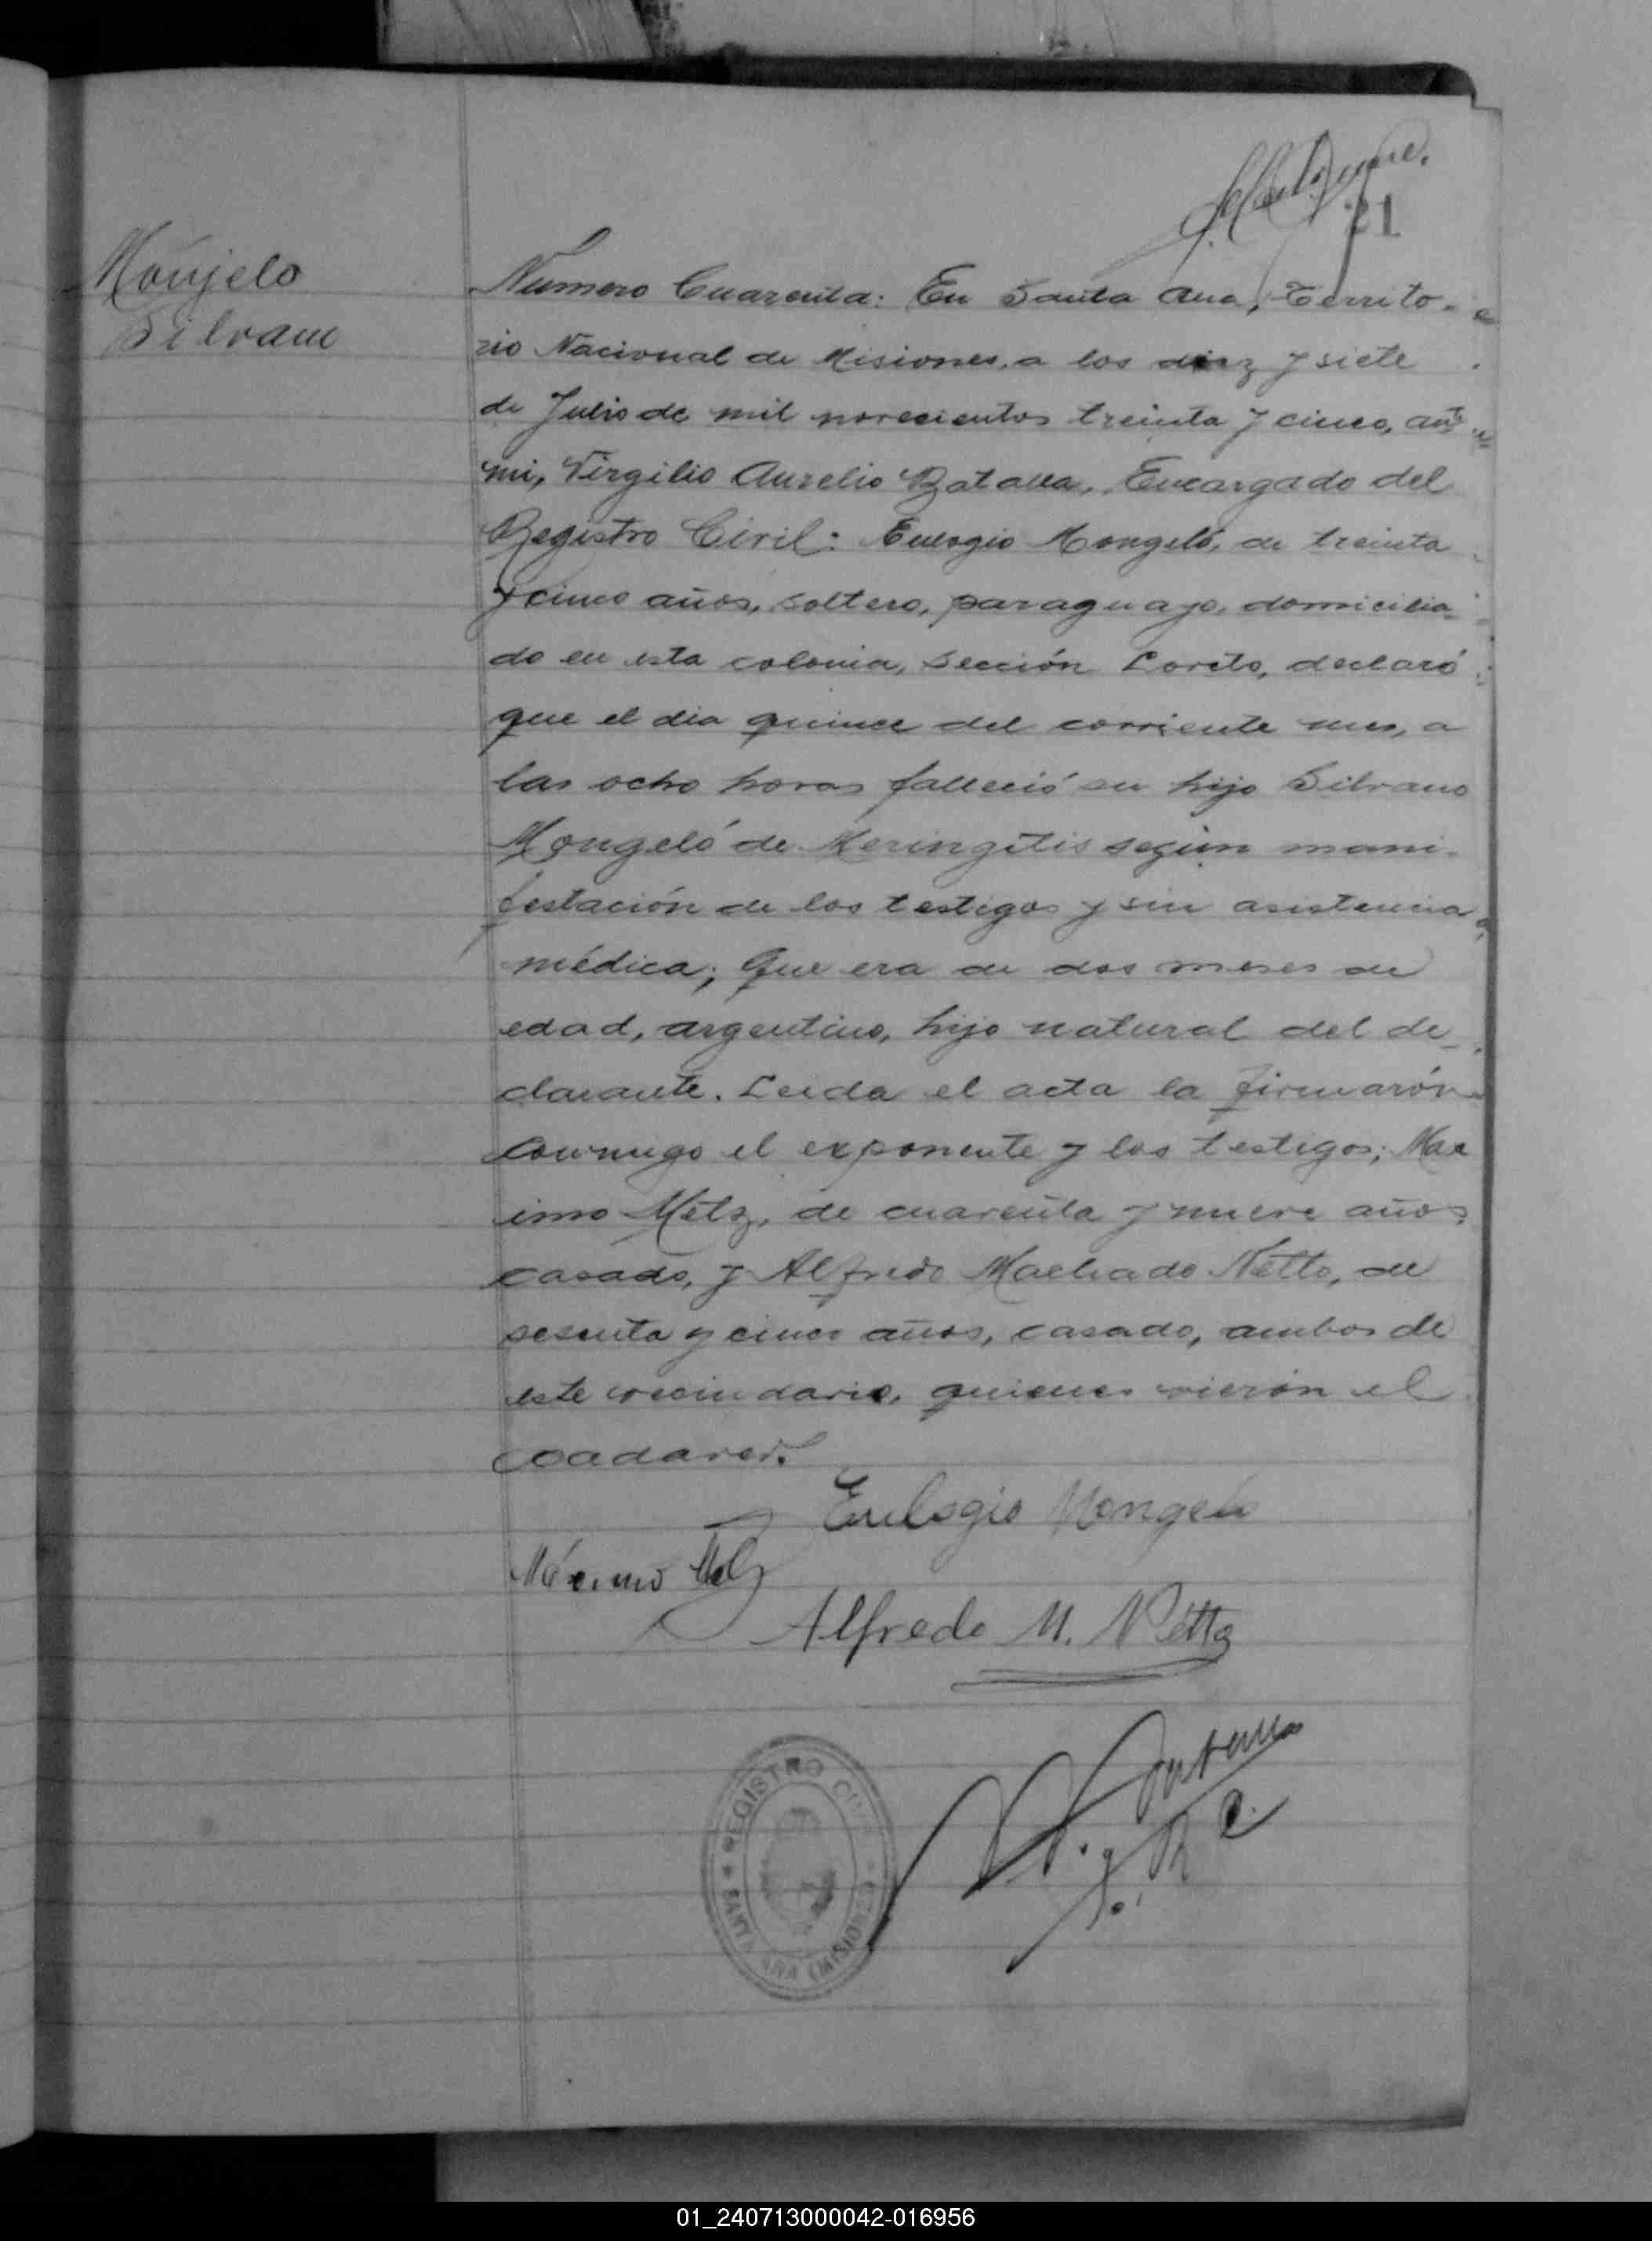 21
Monjelo
Silvano
Numero Cuarenta: En Santa Ana, Territo-
rio Nacional de Misiones, a los diez y siete
de Julio de mil novecientos treinta y cinco, ante
mi, Virgilio Aurelio Batalla, Encargado del
Registro Civil: Eulogio Mongeló, de treinta
y cinco años, soltero, paraguayo, domicilia-
do en esta colonia, sección Loreto, declaró
que el dia quince del corriente mes, a
las ocho horas falleció su hijo Silvano
Mongeló de Meringitis según mani-
festación de los testigos y sin asistencia
médica; que era de dos meses de
edad, argentino, hijo natural del de-
clarante. Leida el acta la firmarón
conmigo el exponente y los testigos; Max
imo Metz, de cuarenta y nueve años,
casado, y Alfredo Machado Netto, de
sesenta y cinco años, casado, ambos de
este vecindario, quienes vierón el
cadaver.
Eulogio Mongelo
Máximo Metz
Alfredo M. Netto
REGISTRO CIVIL
SANTA ANA (MISIONES)
01_240713000042-016956